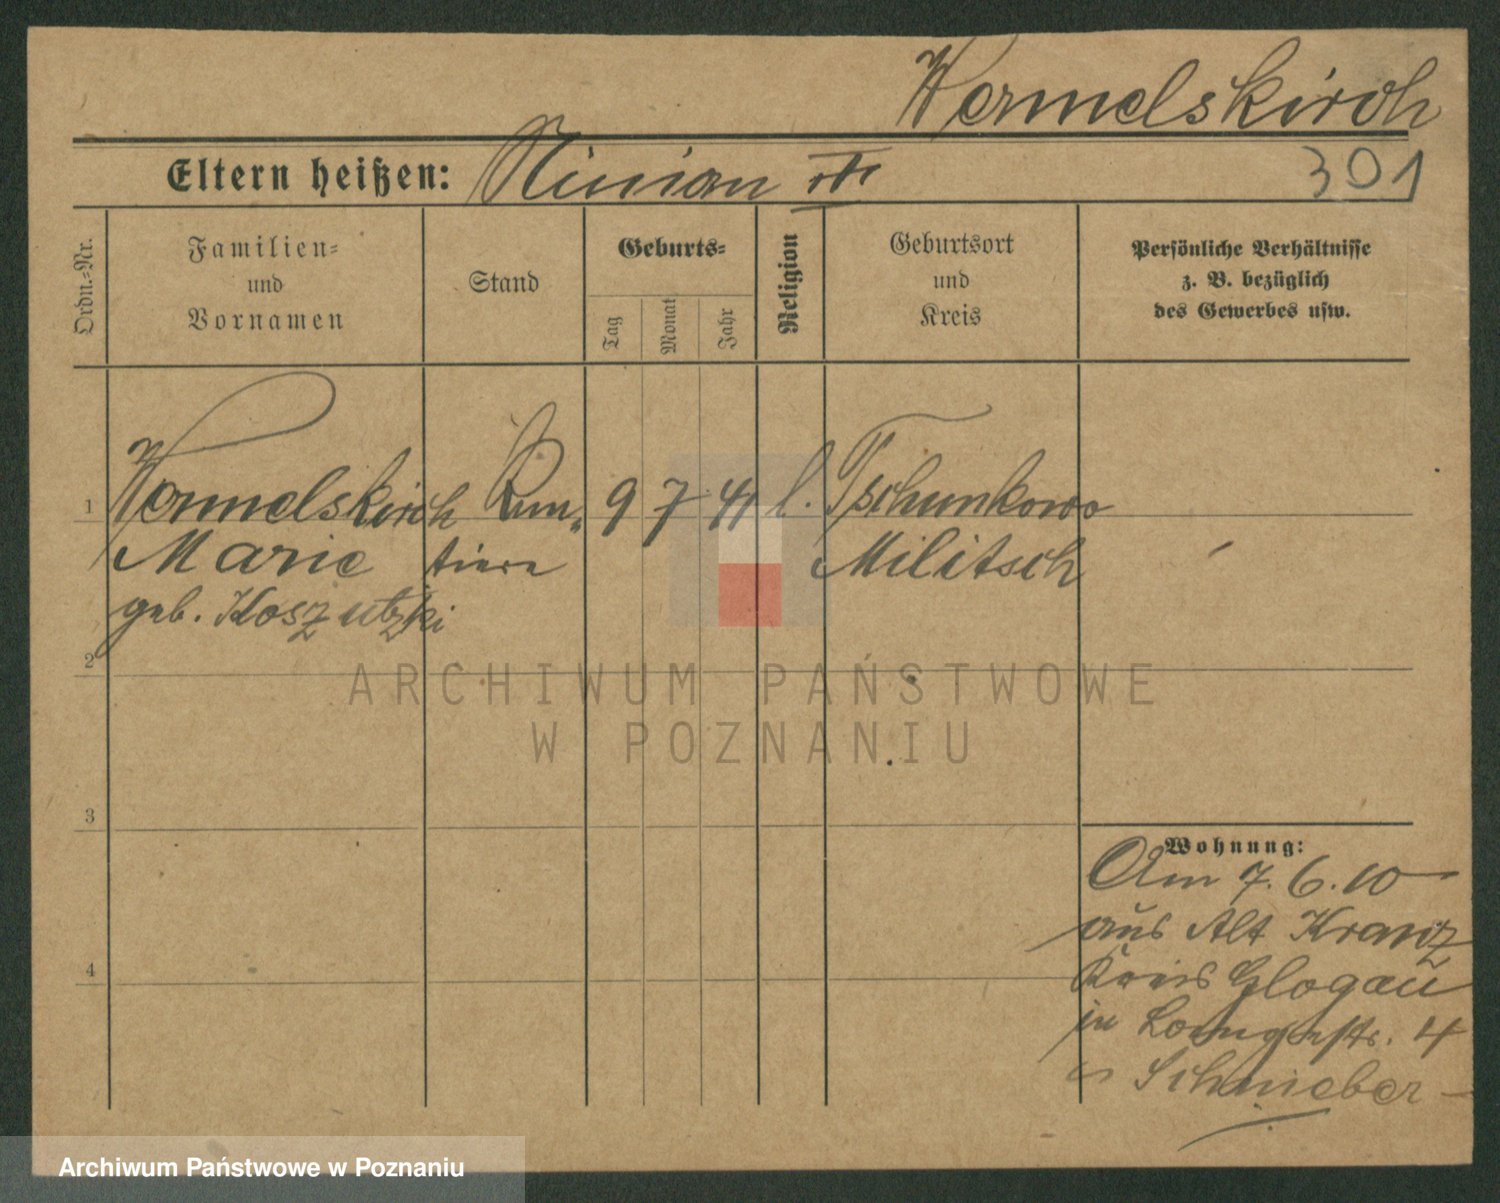 Wermelskirch
Eltern heißen:
301
Ordn.-Nr.
Familien-
und
Vornamen
Stand
Geburts-
Tag
Monat
Jahr
Religion
Geburtsort
und
Kreis
Persönliche Verhältnisse
z. B. bezüglich
des Gewerbes usw.
1
Wermelskirch Ren-
9 7 41 l. Tschunkowo
Marie tiere Militsch
geb. Koszutzki
2
ARCHIWUM PAŃSTWOWE
W POZNANIU
3
Wohnung:
Am 7.6.10
aus Alt Kranz
4
Kreis Glogau
in Langestr. 4
Schnieber
Archiwum Państwowe w Poznaniu